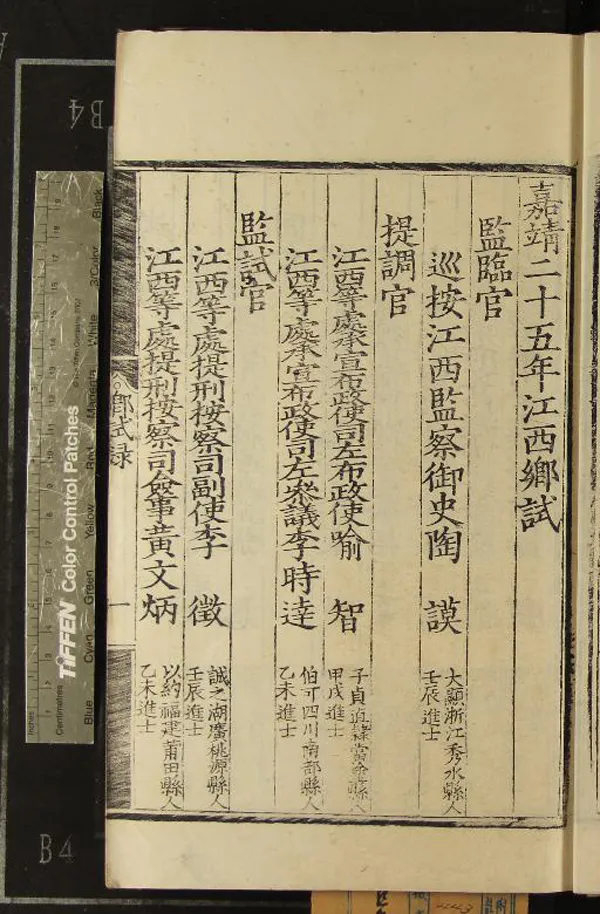 嘉靖二十五年江西鄉試
監臨官
巡按江西監察御史陶 謨 大顯浙江秀水縣人
壬辰進士
提調官
江西等處承宣布政使司左布政使喻 智 子貞直隸當塗縣人
甲戌進士
江西等處承宣布政使司左叅議李時達 伯可四川南部縣人
乙未進士
監試官
江西等處提刑按察司副使李 徵 誠之湖廣桃源縣人
壬辰進士
江西等處提刑按察司僉事黃文炳 以約福建莆田縣人
乙未進士
鄉試錄
一
B4
B4
TIFFEN Color Control Patches
Blue
Cyan
Green
Yellow
Red
Magenta
White
3/Color
Black
Inches
Centimetres